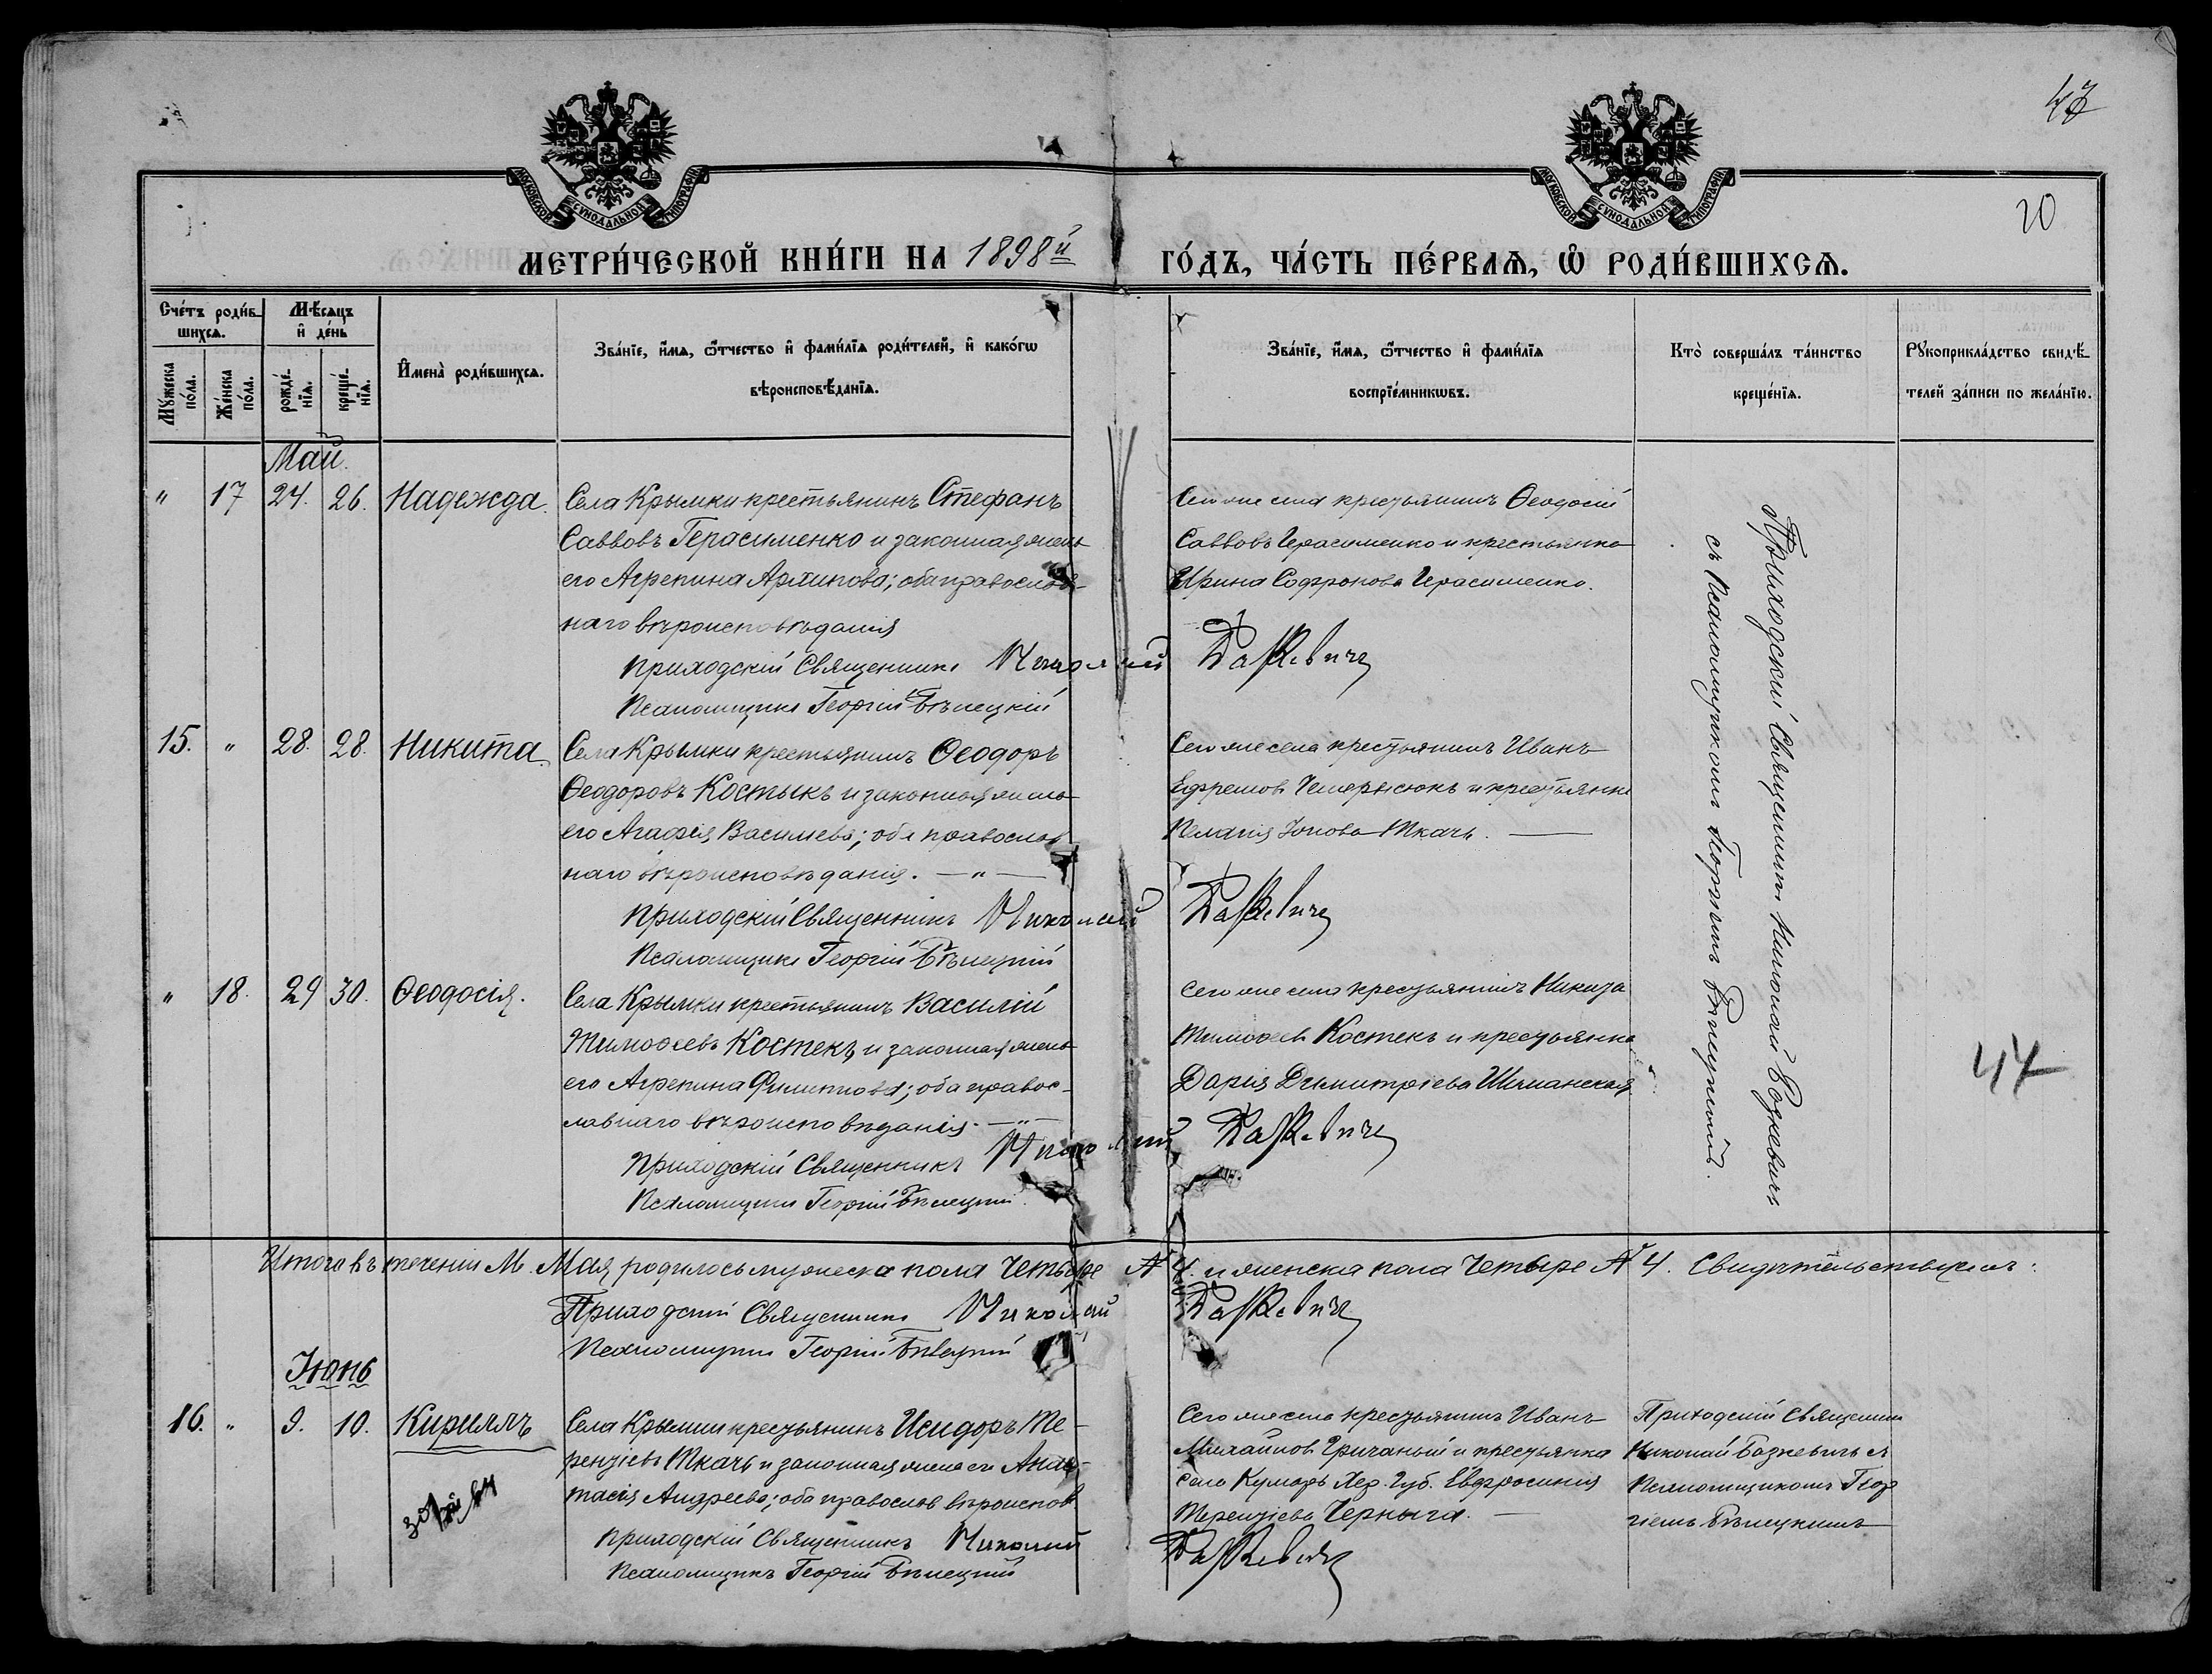 47
20
МОСКОВСКОЙ СѴНОДАЛЬНОЙ ТИПОГРАФІИ
МОСКОВСКОЙ СѴНОДАЛЬНОЙ ТИПОГРАФІИ
МЕТРИ́ЧЕСКОЙ КНИ́ГИ НА 1898й ГО́ДЪ, ЧА́СТЬ ПЕ́РВАѦ, Ѽ РОДИ́ВШИХСѦ.
Сче́тъ роди́в-
шихсѧ.
Мꙋжеска по́ла.
Же́нска по́ла.
Мѣ́сѧцъ
и҆ де́нь
рожде́-
нїѧ.
креще́-
нїѧ.
И҆мена̀ роди́вшихсѧ.
Зва́нїе, и҆́мѧ, ѻ҆́тчество и҆ фами́лїѧ роди́телей, и҆ како́гѡ
вѣроисповѣ́данїѧ.
Зва́нїе, и҆́мѧ, ѻ҆́тчество и҆ фами́лїѧ
воспрїе́мникѡвъ.
Кто̀ соверша́лъ та́инство
креще́нїѧ.
Рꙋкоприкла́дство свидѣ́-
телей за́писи по жела́нїю.
Май.
" 17 24. 26. Надежда.
Села Крымки крестьянинъ Стефанъ
Саввовъ Герасименко и законная жена
его Агрепина Архипова; оба православ-
наго вѣроисповѣданія
Приходскій Священникъ Николай Базкевичъ
Псаломщикъ Георгій Бѣлецкій
Сего же села крестьянинъ Ѳеодосій
Саввовъ Герасименко и крестьянка
Ирина Софронова Герасименко.
Приходскій Священникъ Николай Базкевичъ
съ Псаломщикомъ Георгіемъ Бѣлецкимъ.
15. " 28. 28. Никита.
Села Крымки крестьянинъ Ѳеодоръ
Ѳеодоровъ Костыкъ и законная жена
его Агафія Васильева; оба православ-
наго вѣроисповѣданія. — " —
Приходскій Священникъ Николай Базкевичъ
Псаломщикъ Георгій Бѣлецкій
Сего же села крестьянинъ Иванъ
Ефремовъ Чемерисюкъ и крестьянка
Пелагія Іонова Ткачъ. —
" 18. 29 30. Ѳеодосія.
Села Крымки крестьянинъ Василій
Тимоѳеевъ Костекъ и законная жена
его Агрепина Филиппова; оба правос-
лавнаго вѣроисповѣданія. — " —
Приходскій Священникъ Николай Базкевичъ
Псаломщикъ Георгій Бѣлецкій.
Сего же села крестьянинъ Никита
Тимоѳеевъ Костекъ и крестьянка
Дарія Димитріева Шиманская.
47
Итого въ теченіи М. Мая родилось мужеска пола Четыре № 4. и женска пола Четыре № 4. Свидѣтельствуемъ:
Приходскій Священникъ Николай Базкевичъ
Псаломщикъ Георгій Бѣлецкій
Іюнь
16. " 9. 10. Кириллъ
Села Крымки крестьянинъ Исидоръ Те-
рентіевъ Ткачъ и законная жена его Анас-
тасія Андреева; оба православ. вѣроисповѣ.
Приходскій Священникъ Николай Базкевичъ
Псаломщикъ Георгій Бѣлецкій
Сего же села крестьянинъ Иванъ
Михайловъ Гричаный и крестьянка
села Хер. Губ. Евфросинія
Терентіева Черныга. —
Приходскій Священникъ
Николай Базкевичъ съ
Псаломщикомъ Геор-
гіемъ Бѣлецкимъ